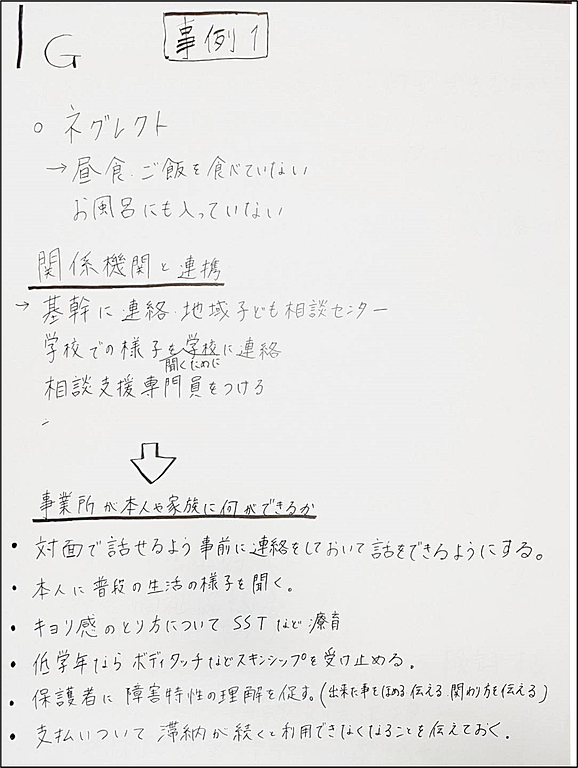 G
事例1
○ ネグレクト
→昼食.ご飯を食べていない
お風呂にも入っていない
関係機関と連携
→ 基幹に連絡・地域子ども相談センター
学校での様子を学校に連絡
聞くために
相談支援専門員をつける
事業所が本人や家族に何ができるか
• 対面で話せるよう事前に連絡をしておいて話をできるようにする。
• 本人に普段の生活の様子を聞く。
• キョリ感のとり方について SSTなど療育
• 低学年ならボディタッチなどスキンシップを受け止める.
• 保護者に障害特性の理解を促す。(出来た事をほめる 伝える 関わり方を伝える)
• 支払いついて 滞納が続くと利用できなくなることを伝えておく.